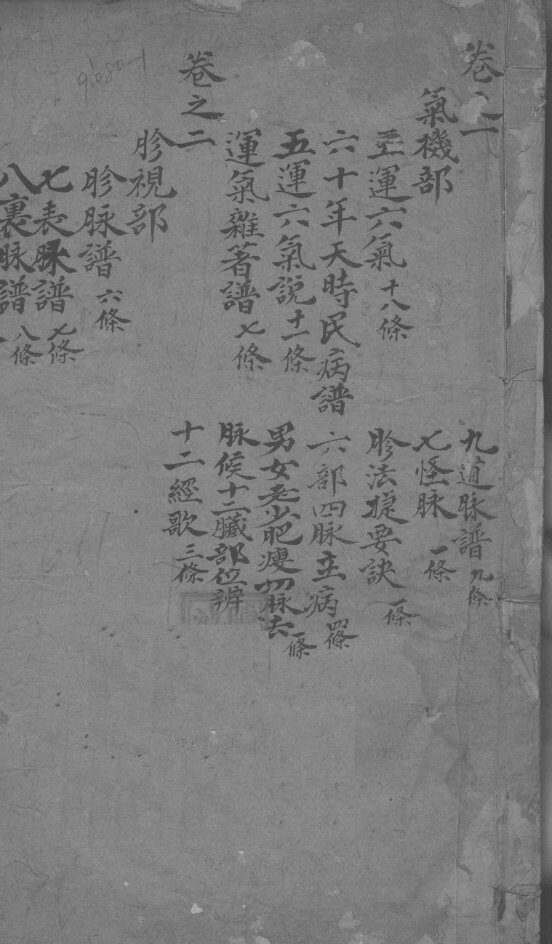 卷之一
氣機部
五運六氣 十八條
六十年天時民病譜
五運六氣說 十一條
運氣雜著譜 七條
卷之二
胗視部
胗脉譜 六條
七表脉譜 七條
八裏脉譜 八條
九道脉譜 九條
七怪脉 一條
胗法捷要訣 一條
六部四脉主病 四條
男女老少肥瘦切脉法 一條
脉候十二臟部位辨
十二經歌 三條
9.080-1